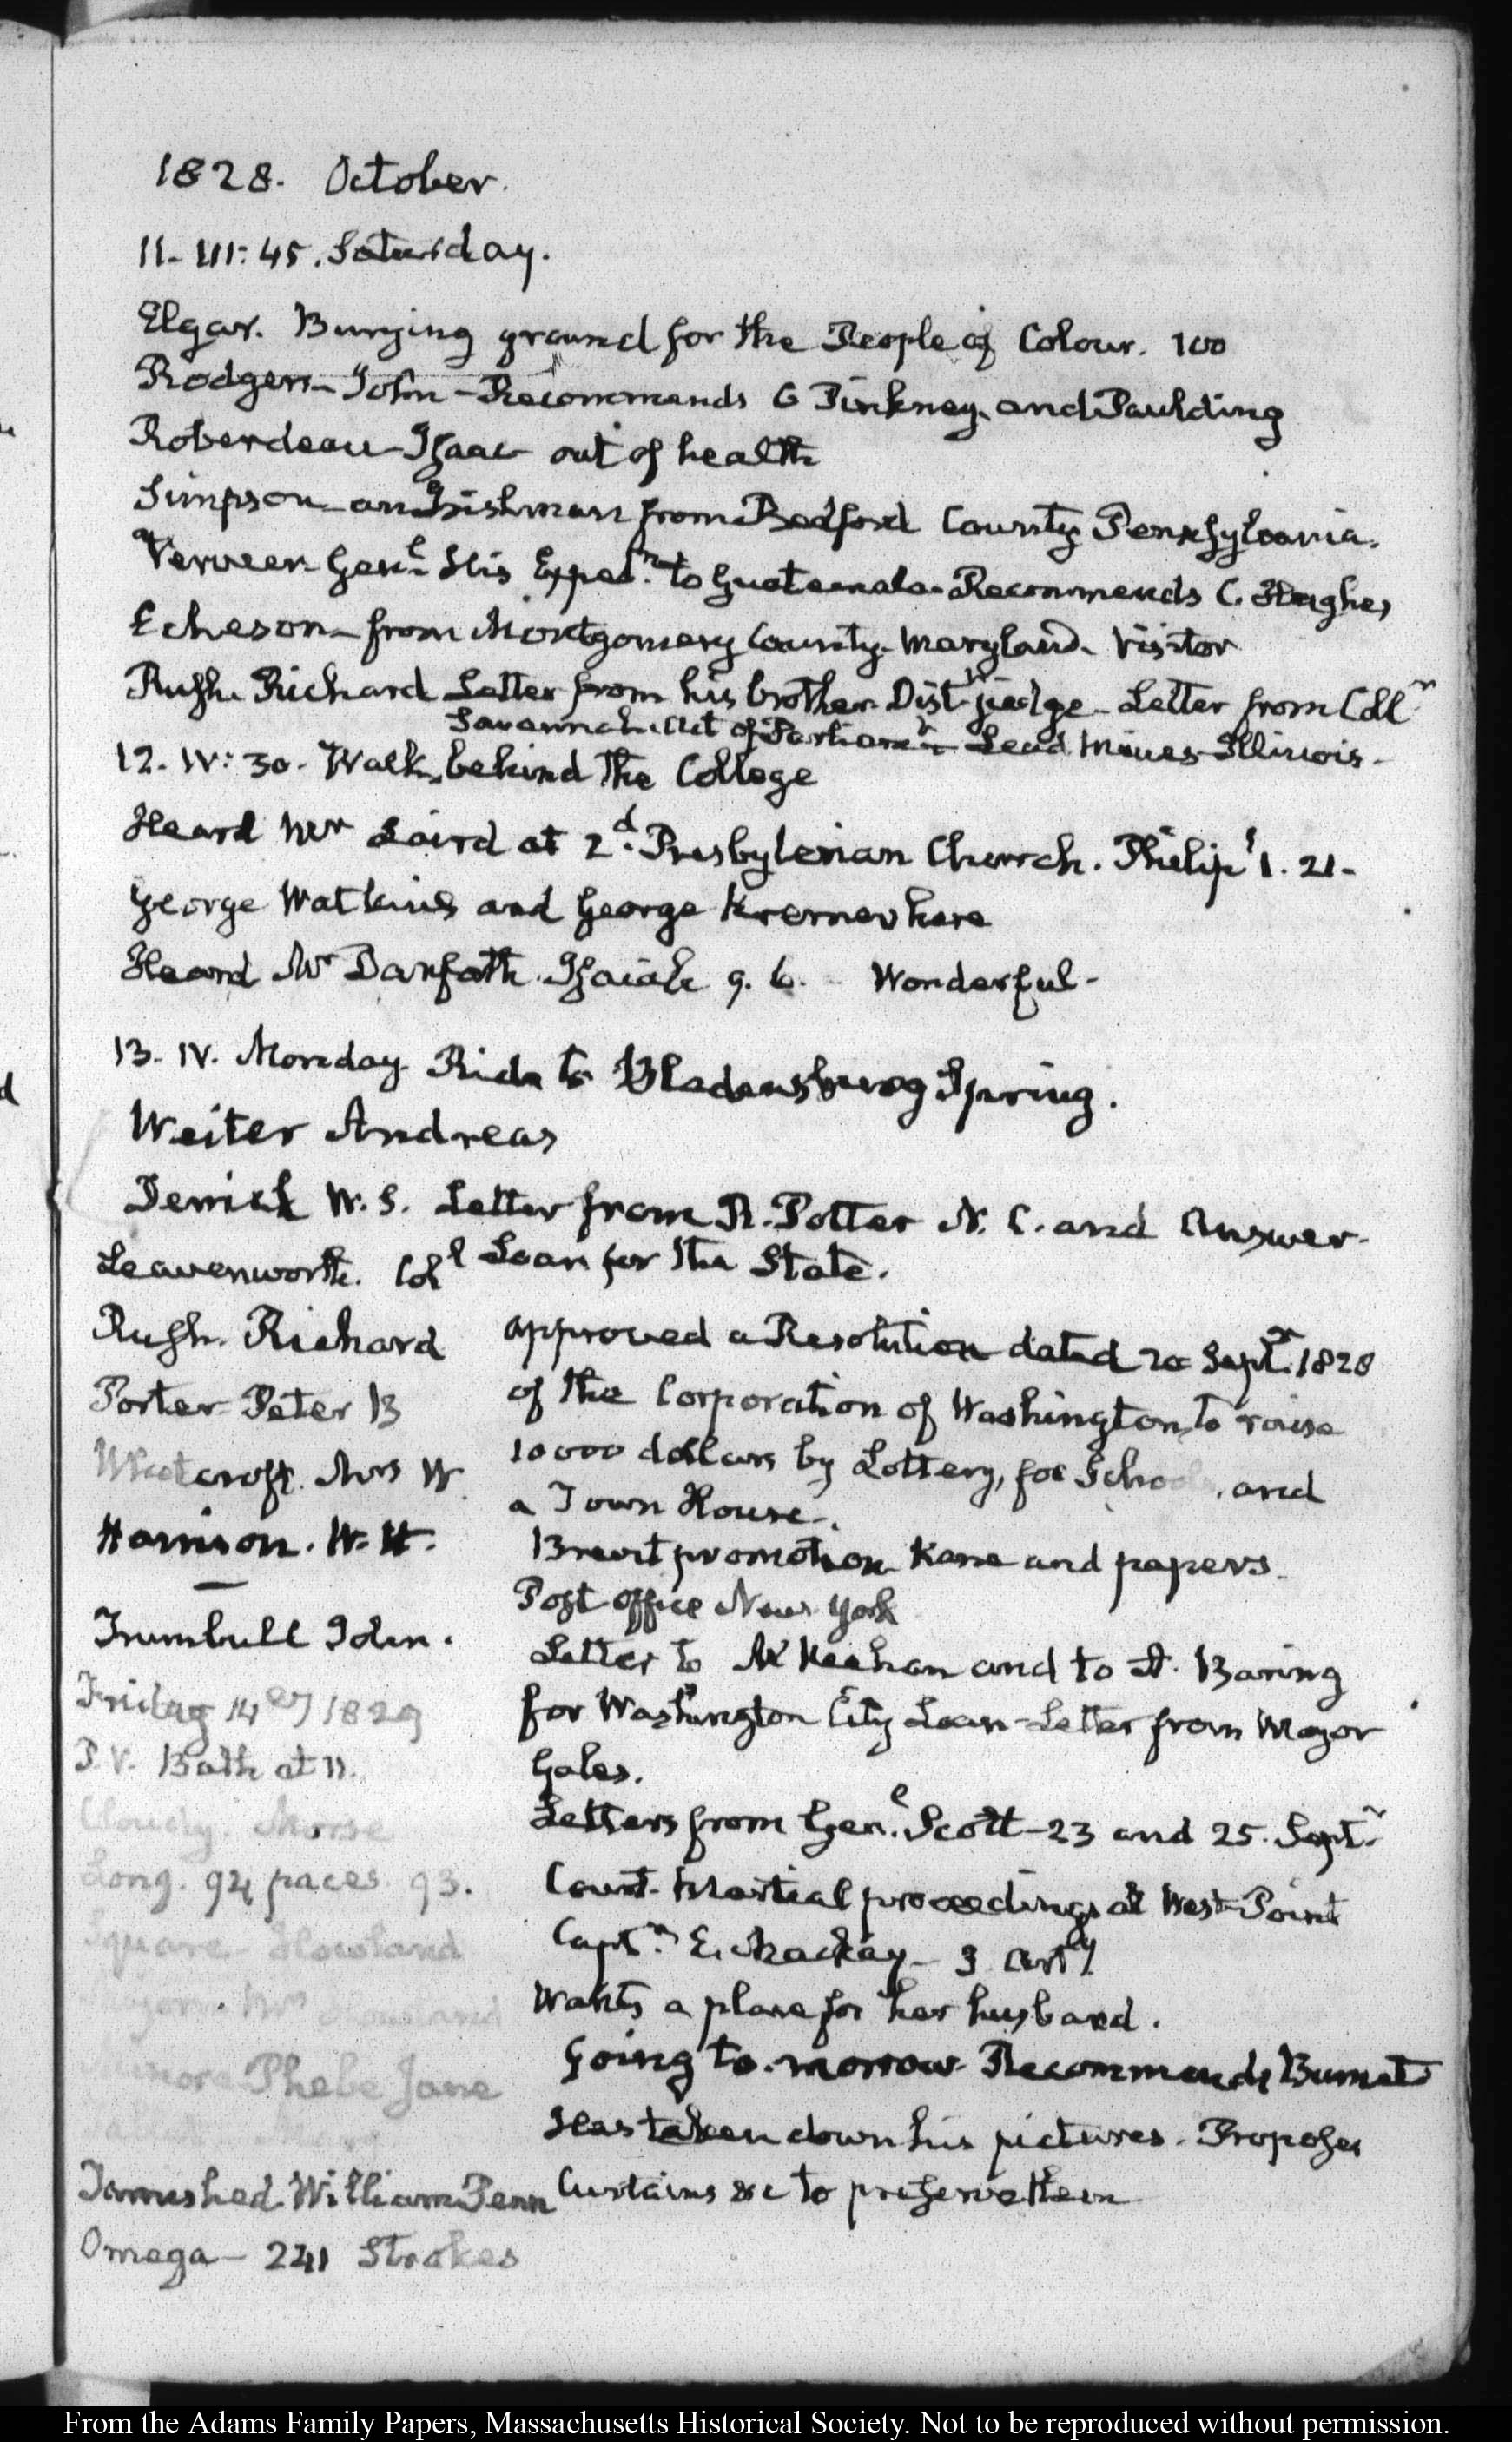 1828. October.
11. III: 45. Saturday.
Elgar. Burying ground for the People of Colour. 100
Rodgers - John - Recommends G Pinkney and Paulding
Roberdeau - Isaac - out of health
Simpson - an Irishman from Bedford County Pennsylvania.
Verveer Gen.l His Exped.n to Guatemala. Recommends C. Hughes
Echeson - from Montgomery County - Maryland - Visitor
Rush. Richard Letter from his brother Dist judge - Letter from Coll.r
Savannah. Act of - Lead Mines Illinois -
12. IV: 30. Walk behind the College
Heard Mr Laird at 2.d Presbyterian Church. Philip.s 1. 21 -
George Watkins and George Kremer here
Heard Mr Danforth Isaiah 9. 6. - Wonderful -
13. IV. Monday Ride to Bladensburg Spring.
Weiter Andreas
Derrick W. S. Letter from R. Potter N. C. and Answer -
Leavenworth. Col.l Loan for the State.
Rush. Richard
Porter - Peter B
Mrs W
Harrison. W. H.
Trumbull John.
Friday 14 1829
P. V. Bath at 11.
Cloudy. Morse
Long. 94 paces 93.
Square - Howland
Major. Mrs Howland
Phebe Jane
William Penn
Omega - 241 Strokes
approved a Resolution dated 20 Sept.r 1828
of the Corporation of Washington, to raise
10000 dollars by Lottery, for Schools, and
a Town House.
Brevet promotion Kane and papers.
Post office New York
Letter to and to A. Baring
for Washington City Loan - Letter from Mayor
Gales.
Letters from Gen.l Scott - 23 and 25. Sept.r
Court-Martial proceedings at West-Point
Capt.n E. Mackay - 3 Art.y
Wants a place for her husband.
Going to-morrow Recommends Burnet
Has taken down his pictures. Proposes
Curtains &c to preserve them
From the Adams Family Papers, Massachusetts Historical Society. Not to be reproduced without permission.